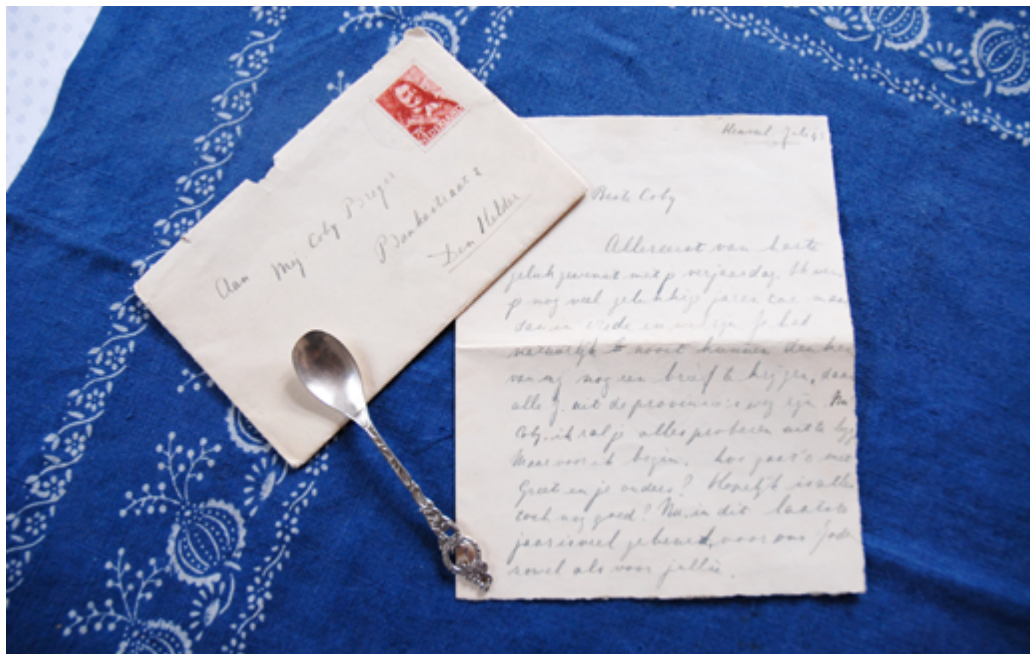 Aan Mej Coby
Bankastraat 2
Den Helder
Beste Coby
Allereerst van harte
geluk gewenst met je verjaardag. Ik wens
je nog veel gelukkige jaren
dan in vrede en
natuurlijk nooit kunnen denken
van mij nog een brief te krijgen, daar
alle J. uit de provincie weg zijn.
Coby, ik zal je alles proberen uit te
Maar voor ik begin, hoe gaat 't met
Greet en je ouders? Hopelijk is alles
toch nog goed? Nu, in dit laatste
jaar is veel gebeurd, voor ons
zowel als voor jullie.